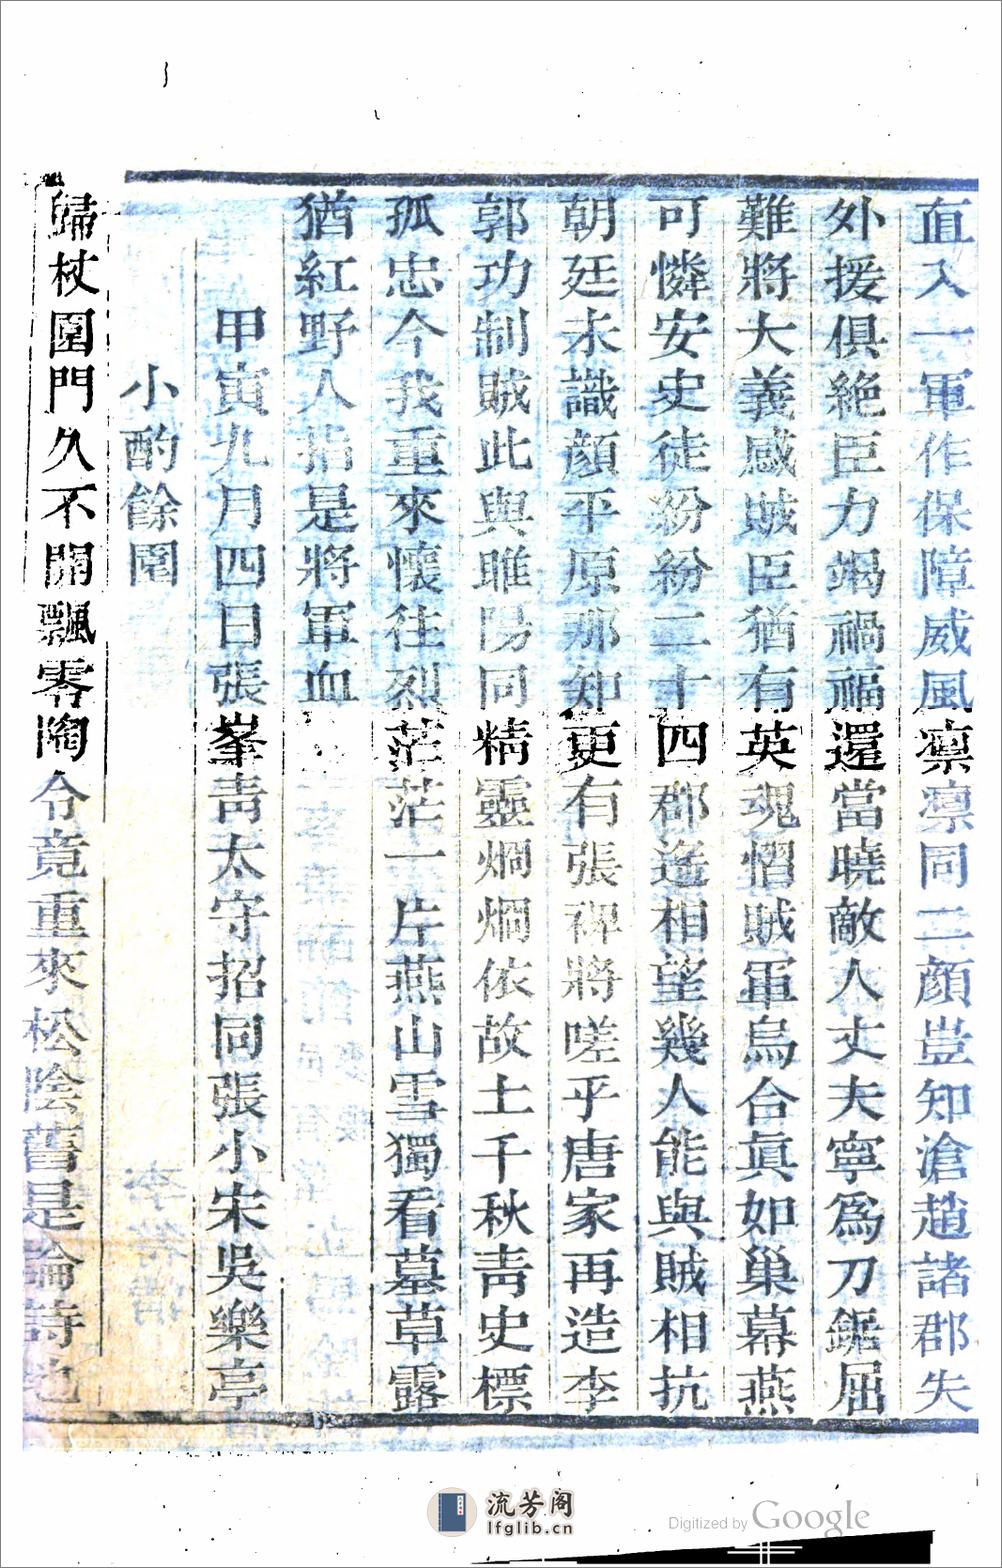 直入一軍作保障威風凛凛同二顔豈知滄趙諸郡失
外援俱絶臣力竭禍福還當曉敵人丈夫寧爲刀鋸屈
難將大義感賊臣猶有英魂慴賊軍烏合眞如巢幕燕
可憐安史徒紛紛二十四郡遙相望幾人能與賊相抗
朝廷未識顔平原那知更有張裨將嗟乎唐家再造李
郭功制賊此與睢陽同精靈烱烱依故土千秋靑史標
孤忠今我重來懷往烈茫茫一片燕山雪獨看墓草露
猶紅野人指是將軍血
甲寅九月四日張峯靑太守招同張小宋吳樂亭
小酌餘園
歸杖園門久不開飄零陶令竟重來松陰舊是論詩地
流芳阁
lfglib.cn
Digitized by Google